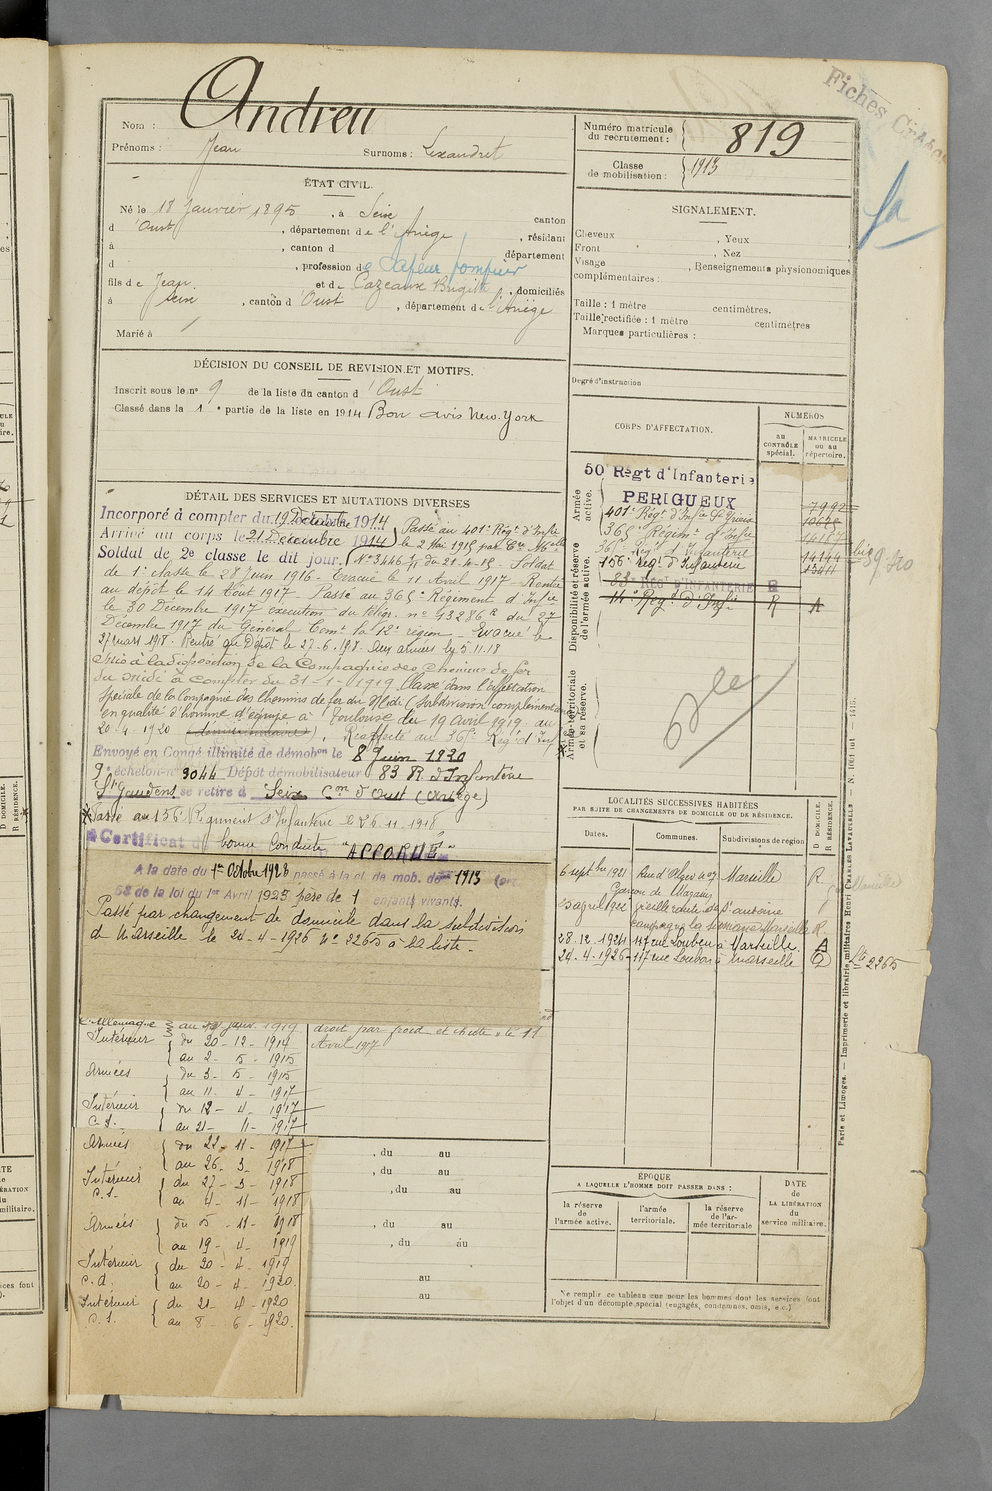 Fiches
Andreu
Nom :
Prénoms : Jean
Surnoms : Lexandret
Numéro matricule
du recrutement : 819
Classe
de mobilisation : 1913
ÉTAT CIVIL.
Né le 18 Janvier 1895, à Seix canton
d'Oust, département de l'Ariège, résidant
à , canton d département
d , profession de Sapeur pompier
fils de Jean et de Cazeaux Brigitte, domiciliés
à Seix, canton d'Oust, département de l'Ariège
Marié à
SIGNALEMENT.
Cheveux , Yeux
Front , Nez
Visage , Renseignements physionomiques
complémentaires :
Taille : 1 mètre centimètres.
Taille rectifiée : 1 mètre centimètres
Marques particulières :
Degré d'instruction
DÉCISION DU CONSEIL DE REVISION ET MOTIFS.
Inscrit sous le n° 9 de la liste du canton d'Oust
Classé dans la 1e partie de la liste en 1914 Bon avis New-York
DÉTAIL DES SERVICES ET MUTATIONS DIVERSES
Incorporé à compter du 19 Décembre 1914
Passé au 401e Régt d'Infie
Arrivé au corps le 21 Décembre 1914
le 2 Mai 1915 par
Soldat de 2e classe le dit jour.
du 21-4-15. Soldat
de 1e classe le 28 Juin 1916 - Evacué le 11 Avril 1917 - Rentré
au dépôt le 14 Aout 1917 - Passé au 365e Régiment d'Infie
le 30 Décembre 1917 execution du télég. n° 13286 R du 27
Décembre 1917 du Général Comt la 12e région - Evacué le
27 mars 1918. Rentré au Dépôt le 27-6.198. Aux armées le 5.11.18
Mis à la disposition de la Compagnie des Chemins de fer
du Midi à compter du 31-1-1919. Classé dans l'affectation
spéciale de la Compagnie des Chemins de fer du Midi (Subdivision complémentaire)
en qualité d'homme d'équipe à Toulouse du 19 avril 1919 au
20-4-1920. Réaffecté au 365e Régt d'Inf
Envoyé en Congé illimité de démobon le 8 Juin 1920
9e échelon n° 3044 Dépôt démobilisateur 83 R. d'Infanterie
St Gaudens se retire à Seix Con d'Oust (Ariège)
Passé au 156 Régiment d'Infanterie le 26.11.1918
Certificat de bonne Conduite "ACCORDÉ"
A la date du 1er Octobre 1923 passé à la cl. de mob. de 1913 (art
58 de la loi du 1er Avril 1923 père de 1 enfants vivants.
Passé par changement de domicile dans la subdivision
de Marseille le 24-4-1926 N° 2265 à la liste.
CORPS D'AFFECTATION.
NUMÉROS
au
CONTRÔLE
spécial.
MATRICULE
ou au
répertoire.
Armée
active.
Disponibilité et réserve
de l'armée active.
Armée territoriale
et sa réserve.
50 Régt d'Infanterie
PERIGUEUX 7992
401e Régt d'Infie
365 Régimt d'Infie
Régt d'Infanterie 14144
156e Régt d'Infanterie 13411
83e REGt D'INFANTERIE R
14e Régt d'Infie R A
LOCALITÉS SUCCESSIVES HABITÉES
PAR SUITE DE CHANGEMENTS DE DOMICILE OU DE RÉSIDENCE.
Dates.
Communes.
Subdivisions de région
D DOMICILE.
R RÉSIDENCE.
6 septbre 1921 Rue d'Alger n° 07 Marseille R
Garçon de Magasin
25 avril 1922 vieille route de St antoine
campagne La Marseille R
28.12.1924 117 rue Loubon à Marseille.
24-4-1926 117 rue Loubon à Marseille D
Lte 2265
l'Allemagne au janv. 1919
droit par froid et chute le 11
Avril 1917
Intérieur du 20-12-1914
au 2-5-1915
Armées du 3-5-1915
au 11-4-1917
Intérieur du 12-4-1917
C.S. au 21-11-1917
Armées du 22-11-1917
au 26-3-1918
Intérieur du 27-3-1918
C.S. au 4-11-1918
Armées du 5-11-1918
au 19-4-1919
Intérieur du 20-4-1919
C.d. au 20-4-1920.
Intérieur du 21-4-1920
C.S. au 8-6-1920.
, du au
, du au
, du au
, du au
, du au
au
au
ÉPOQUE
A LAQUELLE L'HOMME DOIT PASSER DANS :
la réserve
de
l'armée active.
l'armée
territoriale.
la réserve
de l'ar-
mée territoriale
DATE
de
LA LIBÉRATION
du
service militaire.
Ne remplir ce tableau que pour les hommes dont les services font
l'objet d'un décompte spécial (engagés, condamnés, omis, etc.)
Paris et Limoges. — Imprimerie et librairie militaires Henri CHARLES-LAVAUZELLE